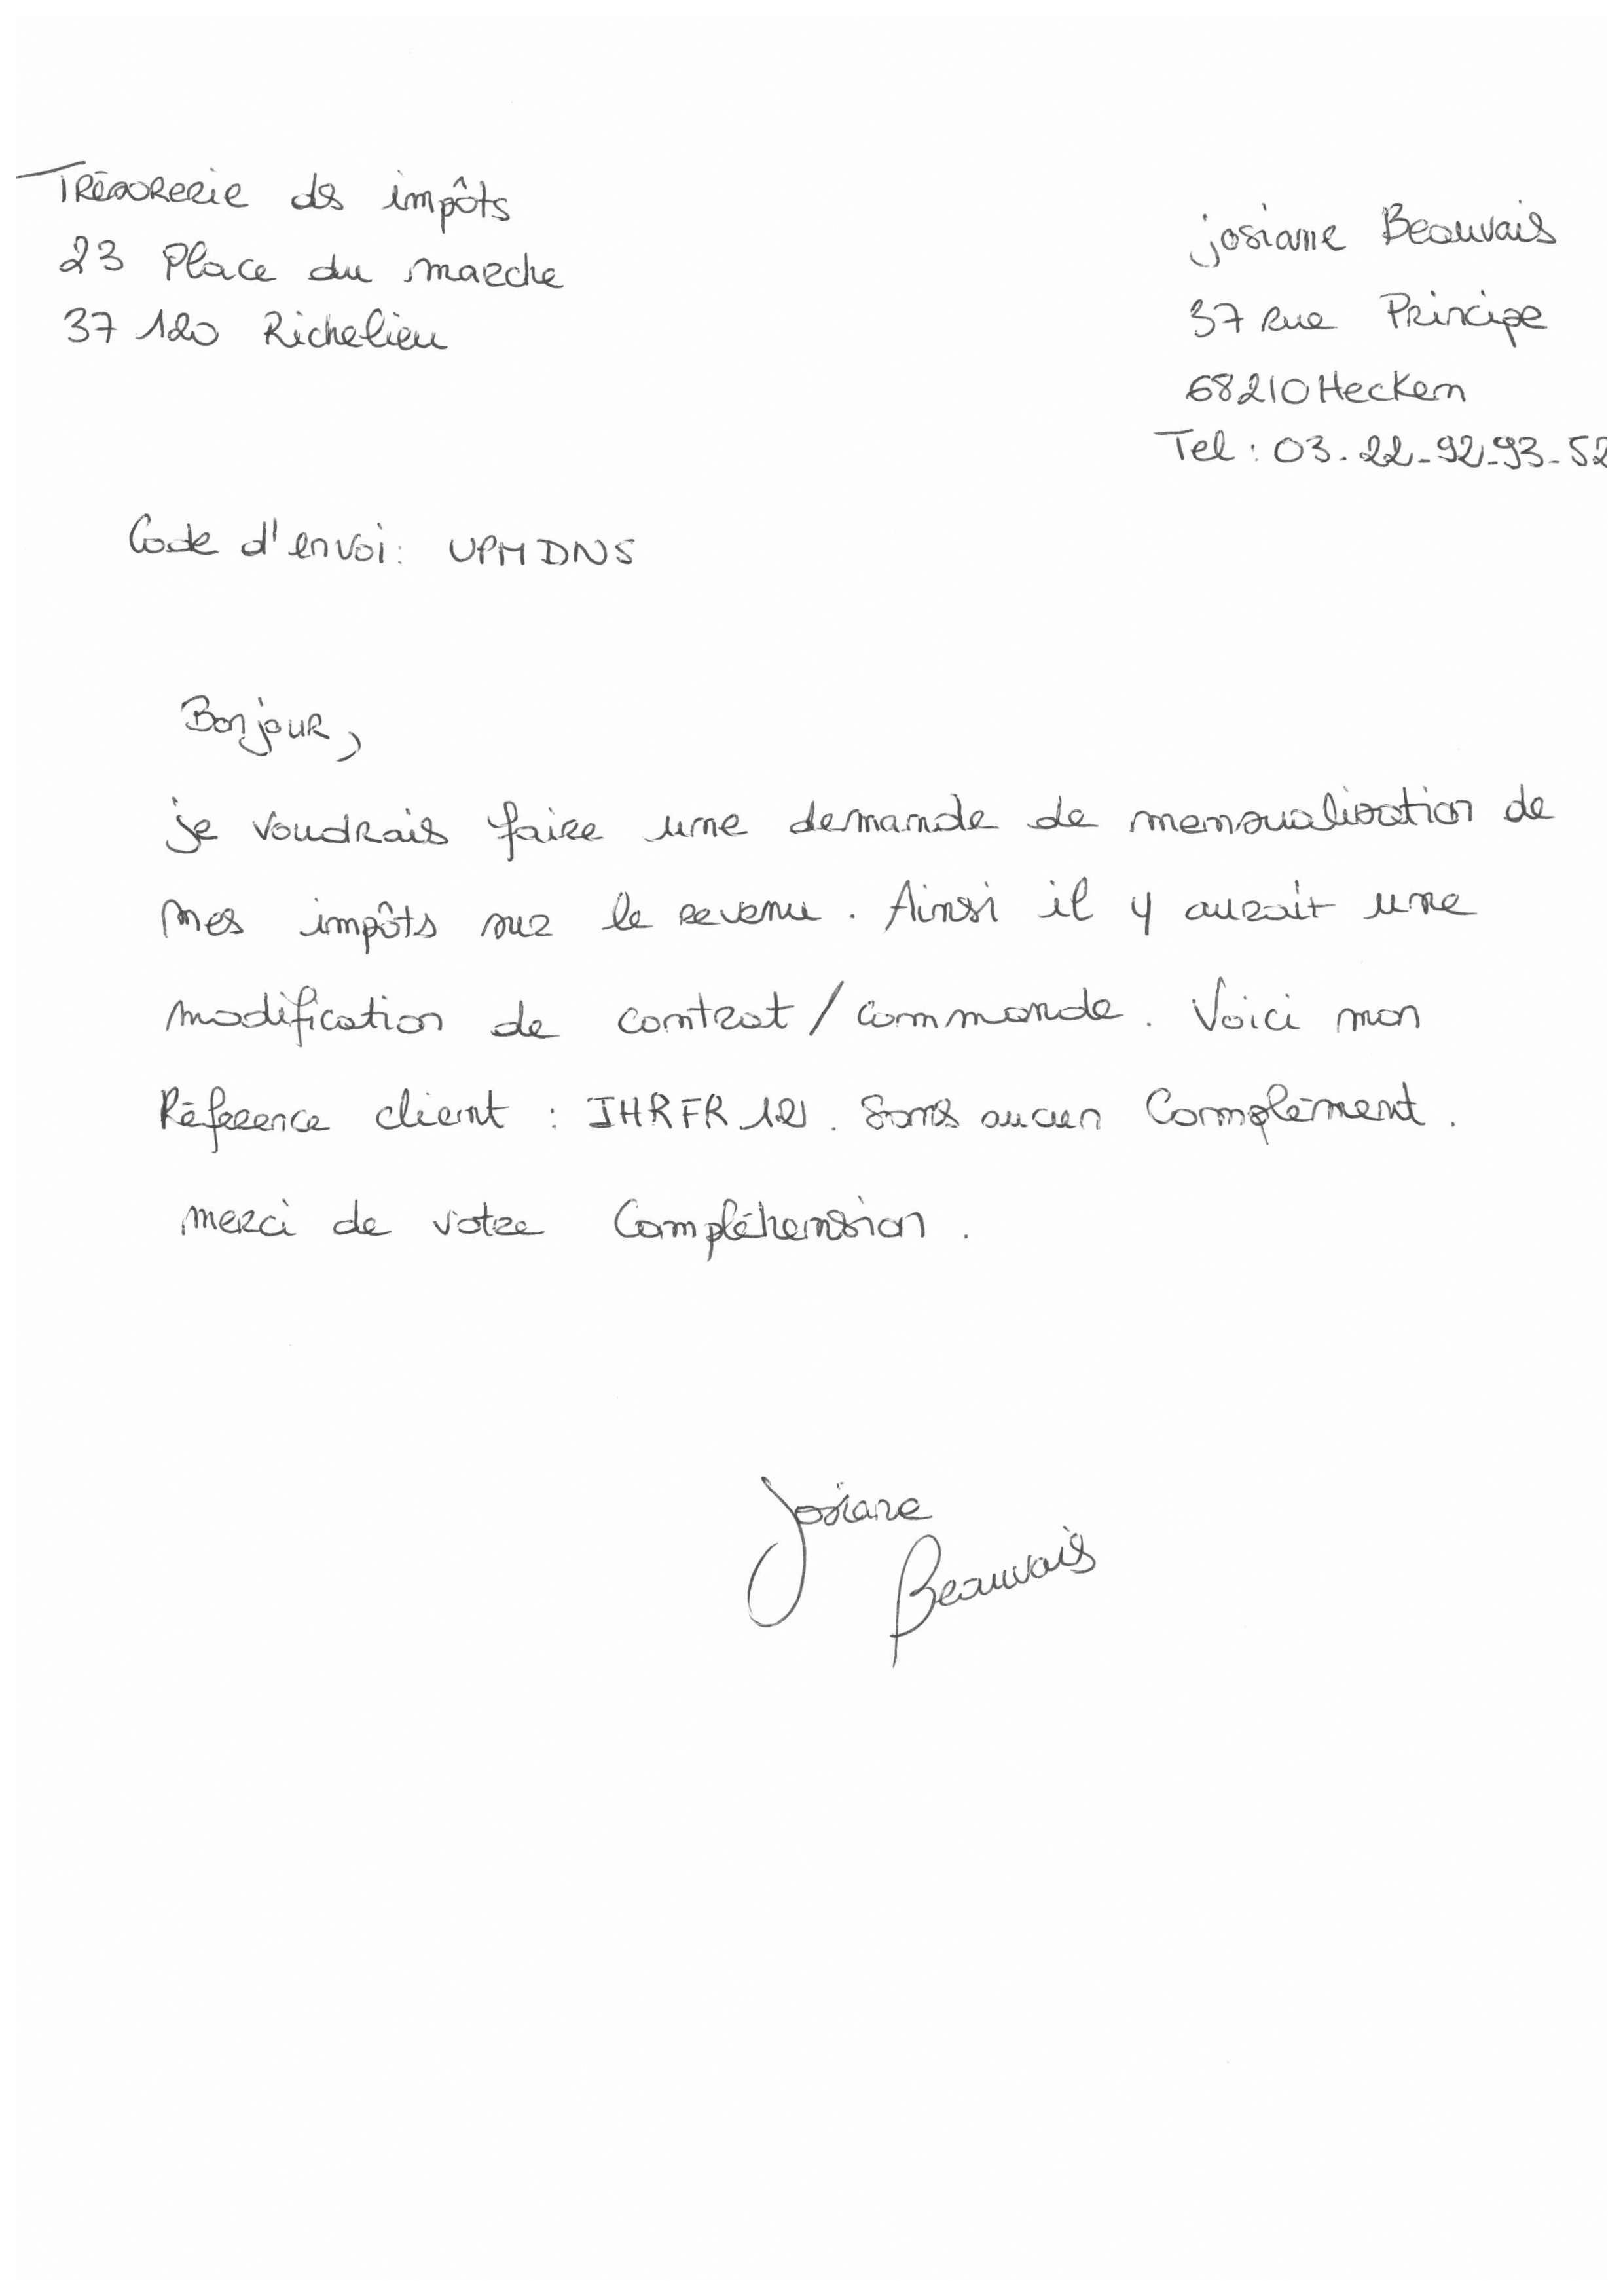 Trésorerie des impôts
23 Place du marche
37 120 Richelieu
josiane Beauvais
37 Rue Principe
68210 Hecken
Tel : 03.22.92.93.52
Code d'envoi : UPMDNS
Bonjour,
je voudrais faire une demande de mensualisation de
mes impôts sur le revenu. Ainsi il y aurait une
modification de contrat / commande. Voici mon
Réference client : IHRFR 12. Sans aucun Complément.
merci de votre Compléhension.
Josiane
Beauvais